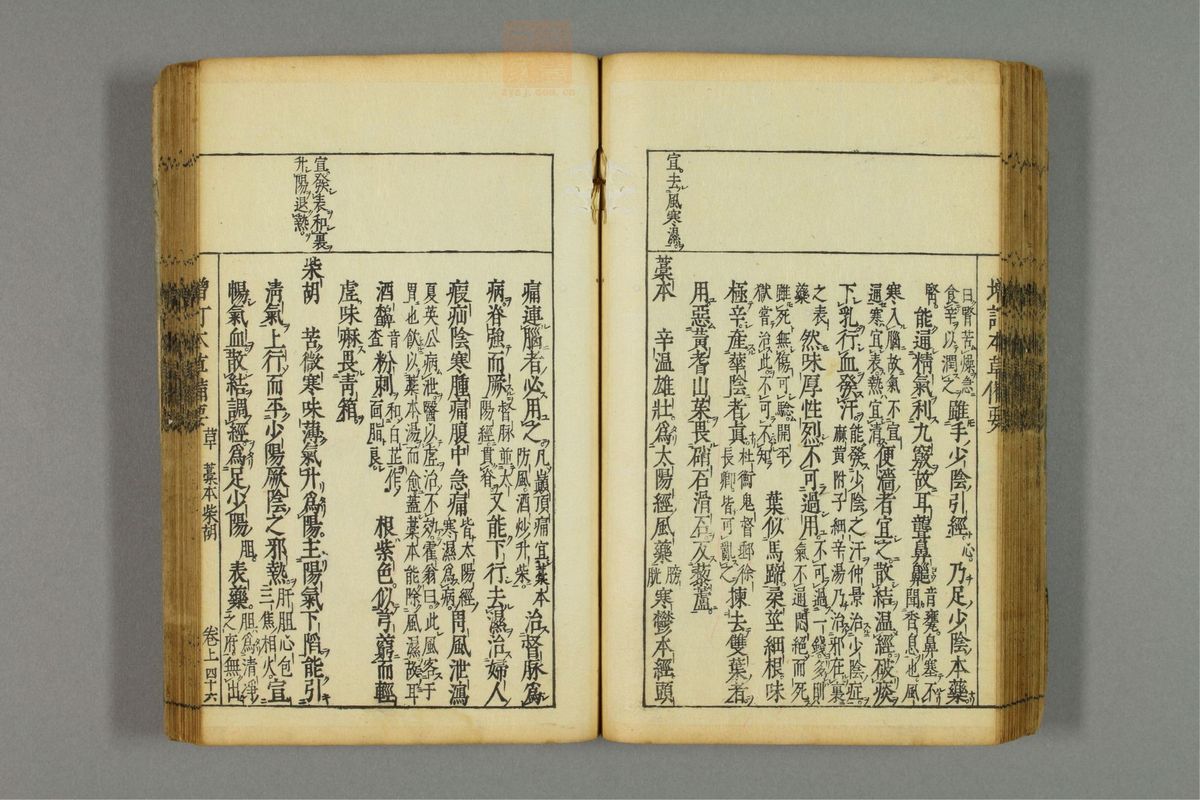 宜去風寒濕
增訂本草備要
曰腎苦燥急食辛以潤之雖手少陰引經心乃足少陰本藥
腎能通精氣利九竅故耳聾鼻齆音甕鼻塞不聞香息也風
寒入腦故氣不宜通寒宜表熱宜清便濇者宜之散結温經破痰
下乳行血發汗能發少陰之汗仲景治少陰症麻黄附子細辛湯乃治邪在裏
之表藥然味厚性烈不可過用不可過一錢多則氣不通悶絕而死
雖死無傷可驗開平獄嘗治此不可不知葉似馬蹄柔莖細根味
極辛產華陰者真杜衡鬼督郵徐長卿皆可亂之揀去雙葉者
用惡黄耆山茱畏硝石滑石反藜蘆
藁本辛温雄壯爲太陽經風藥膀胱寒鬱本經頭
痛連腦者必用之凡巔頂痛宜藁本防風酒炒升柴治督脉爲
病脊強而厥督脉並太陽經貫脊又能下行去濕治婦人
疝瘕陰寒腫痛腹中急痛皆太陽經寒濕爲病胃風泄瀉
夏英公病泄醫以虛治不効霍翁曰此風客于胃也飲以藁本湯而愈蓋藁本能除風濕故耳
酒齄音查粉刺和白芷作面脂良根紫色似芎藭而輕
虛味麻畏青箱
宜發表和裏
升陽退熱
柴胡苦微寒味薄氣升爲陽主陽氣下陷能引
清氣上行而平少陽厥陰之邪熱肝胆心包三焦相火宣
暢氣血散結調經爲足少陽胆表藥胆爲清淨之府無出
增訂本草備要 草 藁本柴胡 卷上四十六